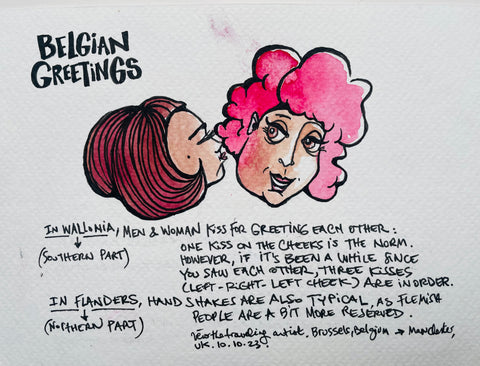 BELGIAN
GREETINGS
IN WALLONIA, MEN & WOMAN KISS FOR GREETING EACH OTHER:
(SOUTHERN PART)
ONE KISS ON THE CHEEKS IS THE NORM.
HOWEVER, IF IT'S BEEN A WHILE SINCE
YOU SAW EACH OTHER, THREE KISSES
(LEFT-RIGHT-LEFT CHEEK) ARE IN ORDER.
IN FLANDERS, HAND SHAKES ARE ALSO TYPICAL, AS FLEMISH
(NORTHERN PART)
PEOPLE ARE A BIT MORE RESERVED.
artist. Brussels, Belgium → Manchester,
UK. 10.10.23.